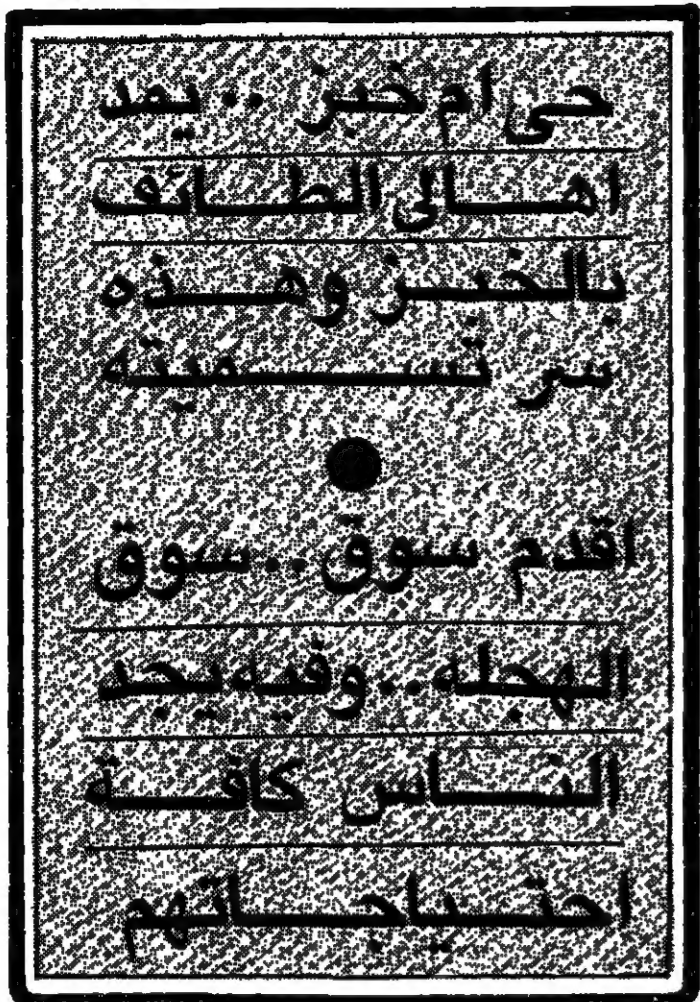 حى ام خبز .. يمد
اهالى الطائف
بالخبز وهذه
سر تسميته
اقدم سوق .. سوق
الهجله .. وفيه يجد
الناس كافة
احتياجاتهم